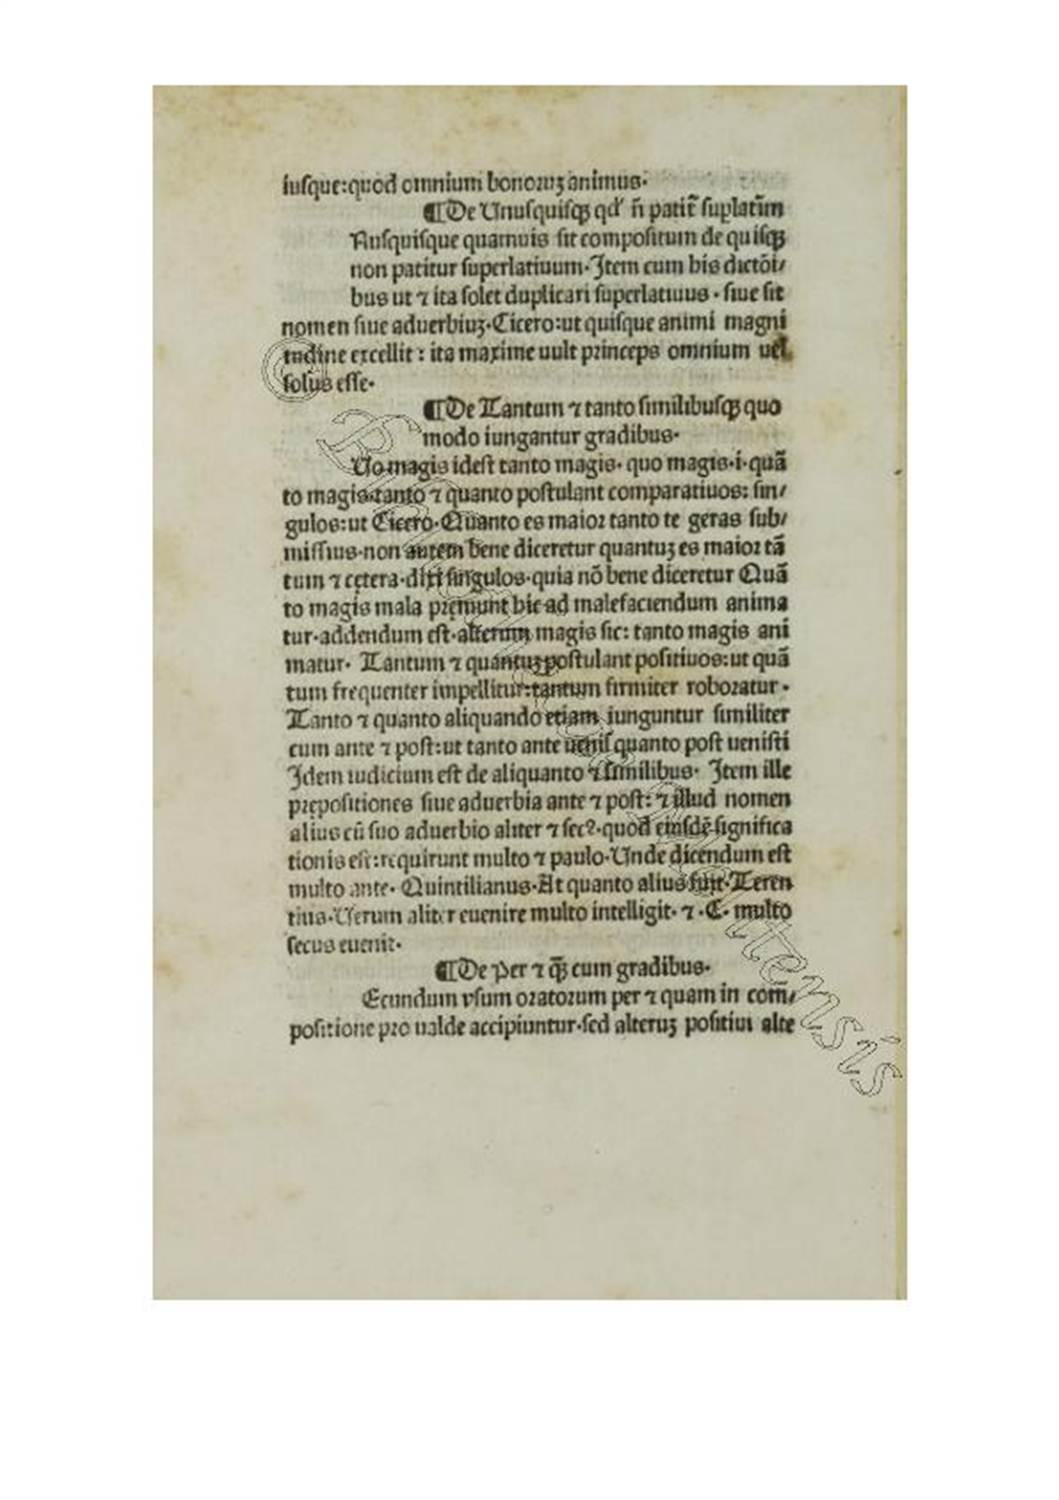 iuſque:quod omnium bonoꝛuꝫ animus·
¶De Unuſquiſqꝫ qď n̄ patit̃ ſuplatiũm
Nuſquiſque quamuis ſit compoſitum de quiſqꝫ
non patitur ſuperlatiuum·Item cum bis dictõi/
bus ut ⁊ ita ſolet duplicari ſuperlatiuus·ſiue ſit
nomen ſiue aduerbiuꝫ·Cicero:ut quiſque animi magni
tudine excellit: ita maxime uult princeps omnium uel
ſolus eſſe·
¶De Tantum ⁊ tanto ſimilibuſqꝫ quo
modo iungantur gradibus·
Uo magis ideſt tanto magis· quo magis·i·quã
to magis·tanto ⁊ quanto poſtulant comparatiuos: ſin/
gulos:ut Cicero·Quanto es maioꝛ tanto te geras ſub/
miſſius·non autem bene diceretur quantuꝫ es maioꝛ tã
tum ⁊ cętera·dixi ſingulos·quia nõ bene diceretur Quã
to magis mala pręmunt hic ad malefaciendum anima
tur·addendum eſt·alterum magis ſic: tanto magis ani
matur· Tantum ⁊ quantuꝫ poſtulant poſitiuos:ut quã
tum frequenter impellitur:tantum firmiter roboꝛatur·
Tanto ⁊ quanto aliquando etiam iunguntur ſimiliter
cum ante ⁊ poſt:ut tanto ante ueniſ quanto poſt ueniſti
Idem iudicium eſt de aliquanto ⁊ ſimilibus· Item ille
prępoſitiones ſiue aduerbia ante ⁊ poſt: ⁊ illud nomen
alius cũ ſuo aduerbio aliter ⁊ ſecꝰ·quod eiuſdẽ ſignifica
tionis eſt:requirunt multo ⁊ paulo·Unde dicendum eſt
multo ante· Quintilianus·At quanto alius fuit·Teren
tius·Uerum aliter euenire multo intelligit· ⁊·C· multo
ſecus euenit·
¶De Per ⁊ qꝫ̃ cum gradibus·
Ecundum vſum oꝛatoꝛum per ⁊ quam in com̃/
poſitione pꝛo ualde accipiuntur·ſed alteruꝫ poſitiui alte